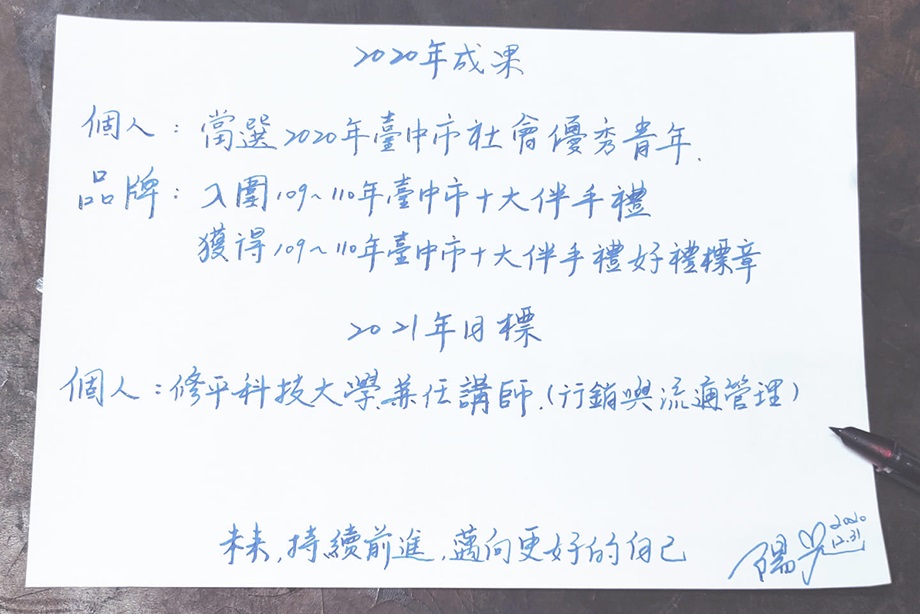 2020年成果
個人：當選2020年臺中市社會優秀青年.
品牌：入圍109~110年臺中市十大伴手禮
獲得109~110年臺中市十大伴手禮好禮標章
2021年目標
個人：修平科技大學兼任講師.(行銷與流通管理)
未來,持續前進,邁向更好的自己
2020
12.31